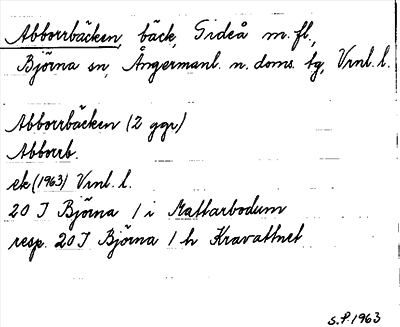 Abborrbäcken, bäck, Gideå m. fl.,
Björna sn, Ångermanl. n. doms. tg, Vrnl. l.
Abborrbäcken (2 ggr)
Abborrb.
ek (1963) Vrnl. l.
20 I Björna 1 i Mattarbodum
resp. 20 I Björna 1 h Kravattnet
S.P. 1963